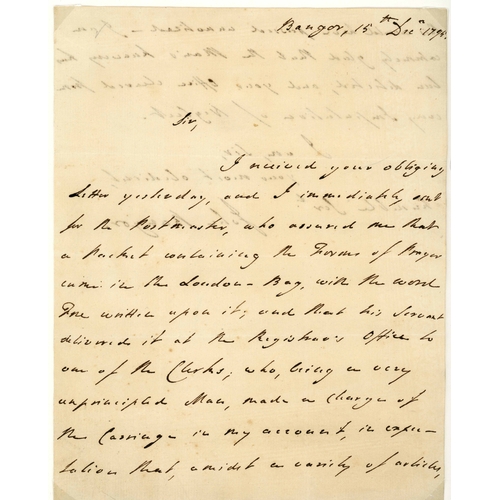 Bangor, 15th Decr 1798.
Sir,
I received your obliging
Letter yesterday, and I immediately sent
for the Postmaster, who assured me that
a Packet containing the Forms of Prayer
came in the London-Bag, with the word
Free written upon it; and that his Servant
delivered it at the Registrar's Office to
one of the Clerks; who, being a very
unprincipled Man, made a Charge of
the Carriage in my account, in expec-
tation that, amidst a variety of articles,